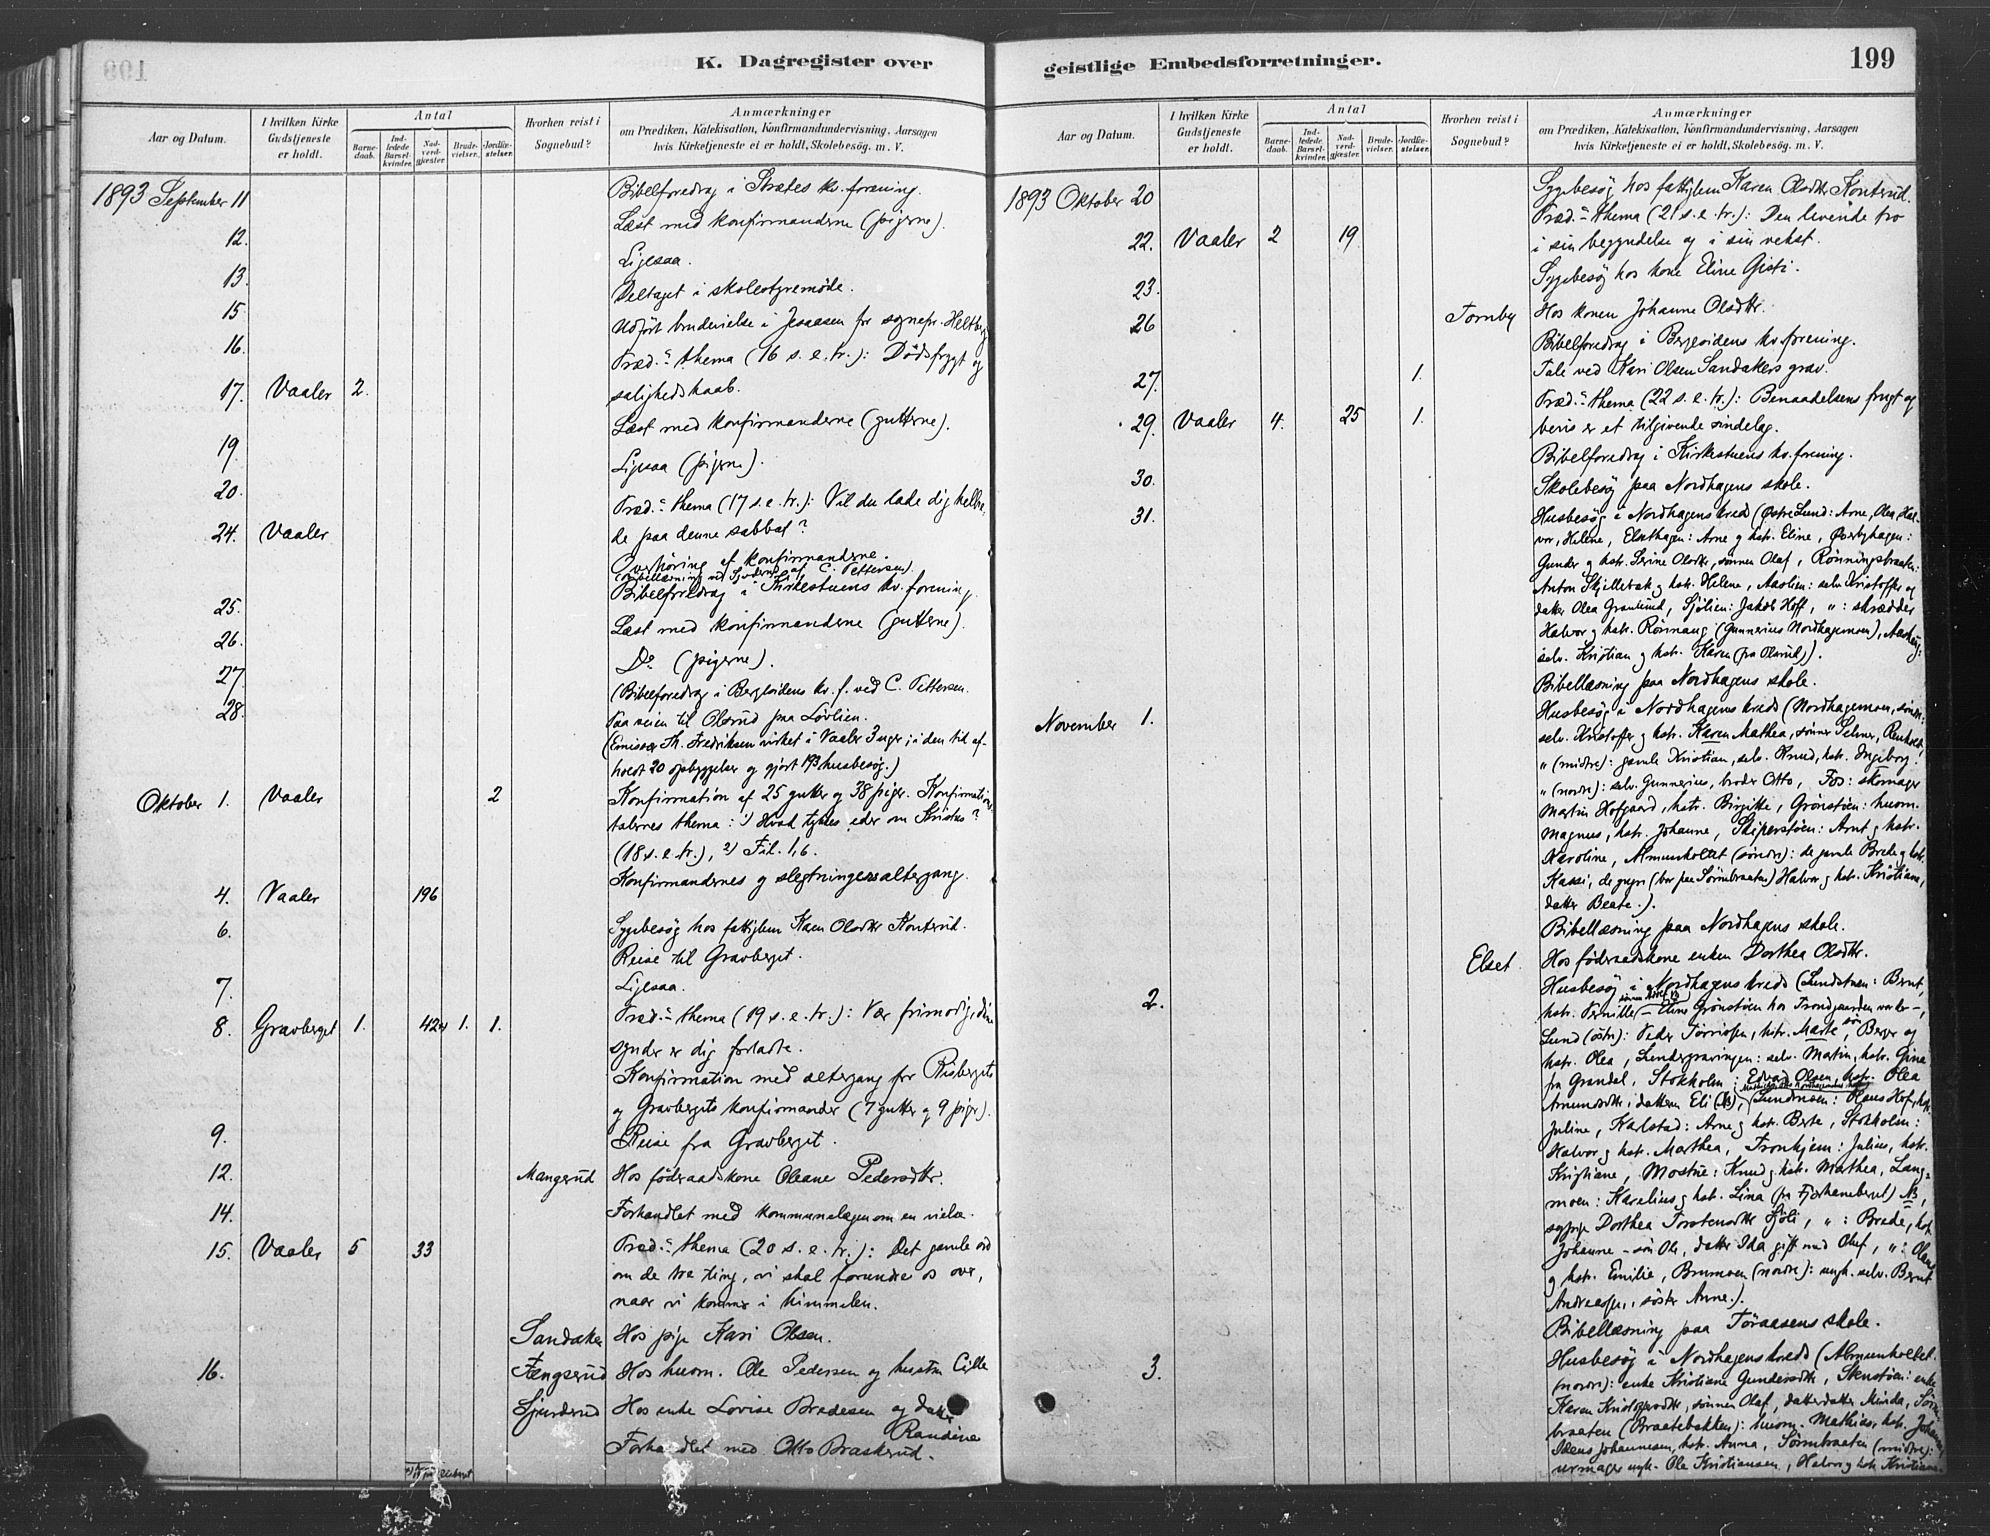 K. Dagregister over
Aar og Datum.
I hvilken Kirke Gudstjeneste er holdt.
Antal
Barnedaab.
Indledede Barselkvinder.
Nadverdgjester
Brudevielser.
Jordfæstelser.
Hvorhen reist i Sognebud?
Anmærkninger
om Prædiken, Katekisation, Konfirmandundervisning, Aarsagen
hvis Kirketjeneste ei er holdt, Skolebesøg. m. V.
1893 September 11 Bibelforedrag i Sætes kv. forening.
Læst med konfirmanderne (pigerne).
12. Ligesaa.
13. Deltaget i skolestyremøde.
15 Udført brudevielse i Jesaasen for sognepr. Heltberg
16. Præd.s thema (16 s. e. tr.): Dødsfrygt og
17. Vaaler 2. salighedshaab.
Læst med konfirmanderne (gutterne).
19. Ligesaa (pigerne).
20. Præd.s thema (17 s. e. tr.): Vil du lade dig helbre-
24. Vaaler de paa denne sabbat?
Overhøring af konfirmanderne.
(Bibellæsning af C. Pettersen)
Bibelforedrag i Kirkestuens kv. forening.
25. Læst med konfirmanderne (gutterne).
26. Do (pigerne).
27. (Bibelforedrag i Bergesidens kv. f. ved C. Pettersen.
28. Paa veien til Olsrud paa Løvlien.
(Emissær Th. Fredriksen virket i Vaaler 3 uger; i den tid af-
holdt 20 opbyggelser og gjort 193 husbesøg.)
Oktober 1. Vaaler 2 Konfirmation af 25 gutter og 38 piger. Konfirmations
talernes thema: 1) Hvad tykkes eder om Kristus?
(18 s. e. tr.), 2) Fil. 1,6.
Konfirmandernes og slegtningers altergang.
4. Vaaler 196
6. Sygebesøg hos fattiglem Karen Olsdtr Konterud.
Reise til Gravberget.
7. Ligesaa.
8. Gravberget 1. 42 1. 1. Præd.s thema (19 s. e. tr.): Vær frimodig, dine
synder er dig forladte.
Konfirmation med altergang for Risbergets
og Gravbergets konfirmander (7 gutter og 9 piger).
9. Reise fra Gravberget.
12. Mangerud Hos føderaadskone Oleane Pedersdtr.
14. Forhandlet med kommunelægen om en vielse.
15. Vaaler 5 33 Præd.s thema (20 s. e. tr.): Det gamle ord
om de tre ting, vi skal forundre os over,
naar vi kommer i himmelen.
Sandaker Hos pige Kari Olsen.
16. Fængserud Hos husm. Ole Pedersen og hustru Cille
Sjurderud Hos enke Lovise Bredesen og datter
Randine
Forhandlet med Otto Braskerud.
geistlige Embedsforretninger.
199
Aar og Datum.
I hvilken Kirke Gudstjeneste er holdt.
Antal
Barnedaab.
Indledede Barselkvinder.
Nadverdgjester
Brudevielser.
Jordfæstelser.
Hvorhen reist i Sognebud?
Anmærkninger
om Prædiken, Katekisation, Konfirmandundervisning, Aarsagen
hvis Kirketjeneste ei er holdt, Skolebesøg. m. V.
1893 Oktober 20 Sygebesøg hos fattiglem Karen Olsdtr Konterud.
Præd.s thema (21 s. e. tr.): Den levende tro
22. Vaaler 2 19 i sin begyndelse og i sin vekst.
Sygebesøg hos kone Eline Gisti.
23.
26 Tornby Hos konen Johanne Olsdtr.
Bibelforedrag i Bergesidens kv. forening.
27. 1. Tale ved Kari Olsen Sandakers grav.
Præd.s thema (22 s. e. tr.): Benaadelsens frugt og
29. Vaaler 4. 25 1. bevis er et tilgivende sindelag.
Bibelforedrag i Kirkestuens kv. forening.
30. Skolebesøg paa Nordhagens skole.
31. Husbesøg i Nordhagens kreds (Østre Lund: Arne, Olea, Hal-
vor, Helene, Elsethagen: Arne og hstr. Eline,
Gunder og hstr. Olsdtr, sønnen Olaf, Rønningsbraaten:
Anton Skjellebæk og hstr. Helene, Aaslien: selv. Kristoffer og
datter Olea Granlund, Sjølien: Jakob Hoff, ": skrædder
Halvor og hstr. Rønnaug (Gunnerius Nordhagemoen),
selv. Kristian og hstr. Karen (fra Olsrud)).
Bibellæsning paa Nordhagens skole.
November 1. Husbesøg i Nordhagens kreds (Nordhagemoen, søndre:
selv. Kristoffer og hstr. Karen Mathea, sønner Selmer, Renholdt,
" (midtre): gamle Kristian, selv. Knud, hstr. Ingeborg.
" (nordre): selv. Gunnerius, broder Otto, Fos: skomager
Martin Hofgaard, hstr. Birgitte, Grønstøen: husm.
Magnus, hstr. Johanne, Skiperstøen: Arnt og hstr.
Karoline, Almenholtet (søndre): de gamle Brede og hstr.
Kassi, de yngre (bor paa Sørmbraaten) Halvor og hstr. Kristiane,
datter Beate.).
Bibellæsning paa Nordhagens skole.
Elset. Hos føderaadskone enken Dorthea Olsdtr.
2. Husbesøg i Nordhagens kreds (Lundstuen: Bernt,
hstr. Pernille – Eline Grønstøen hos
Lund (østre): Peder Tørrisen, hstr. Marte, søn Berger og
hstr. Olea, Lundegravingen: selv. Martin, hstr. Gina
fra Grandal, Stokholm: Edvard Olsen, hstr. Olea
Amundsdtr, datteren Eli (NB), Lundmoen: Olaus Hof, hstr.
Juline, Kalstad: Arne og hstr. Berte, Stokholm:
Halvor og hstr. Marthea, Tronhjem: Julius, hstr.
Kristiane, Mostue: Knud og hstr. Mathea, Lang-
moen: Karelius og hstr. Lina (fra Fjørhaneberget) NB,
sygepige Dorthea Torstensdtr Sjøli, ": Brede, hstr.
Johanne – søn Ole, datter Ida gift med Oluf, ":
og hstr. Emilie, Brumoen (nordre): ungk. selv. Bernt
Andreassen, søster Anne.).
Bibellæsning paa Føraasens skole.
3. Husbesøg i Nordhagens kreds (Almenholtet
(nordre): enke Kristiane Gundersdtr, Stenstøen: enke
Karen Kristoffersdtr, sønnen Olaf, datterdatter Minda, Sørm-
braaten (Braatebakken): husm. Mathias, hstr. Johanne,
Johannesen, hstr. Anna, Sørmbraaten (midtre):
urmager ungk. Ole Kristiansen, Halvor og hstr. Kristiane.